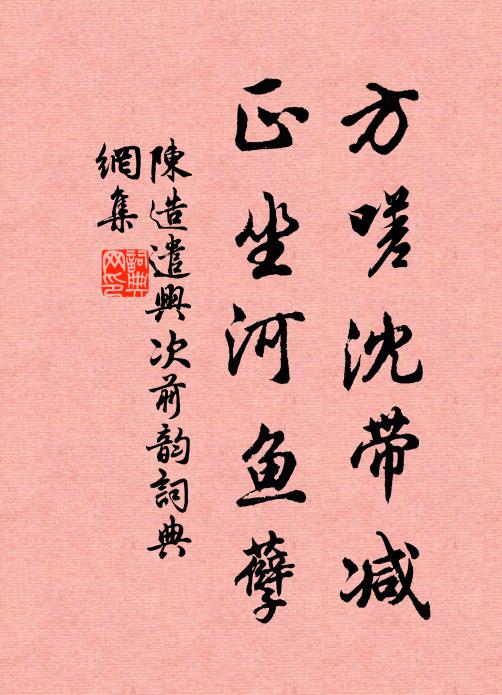 方嗟沈带减
正坐河鱼孽
陳造遣興次前韵詞典
網集
詞典网印